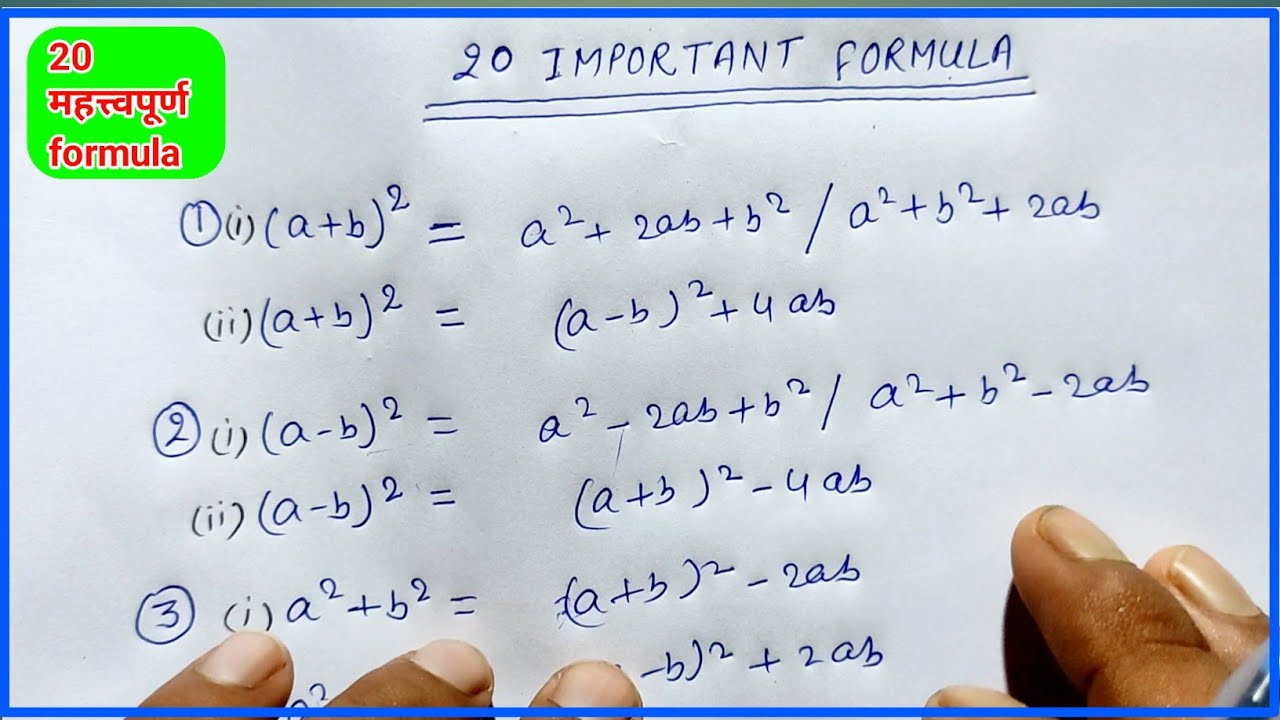 20
महत्त्वपूर्ण
formula
20 IMPORTANT FORMULA
① (i) (a+b)² = a² + 2ab + b² / a² + b² + 2ab
(ii) (a+b)² = (a-b)² + 4ab
② (i) (a-b)² = a² - 2ab + b² / a² + b² - 2ab
(ii) (a-b)² = (a+b)² - 4ab
③ (i) a² + b² = (a+b)² - 2ab
-b)² + 2ab